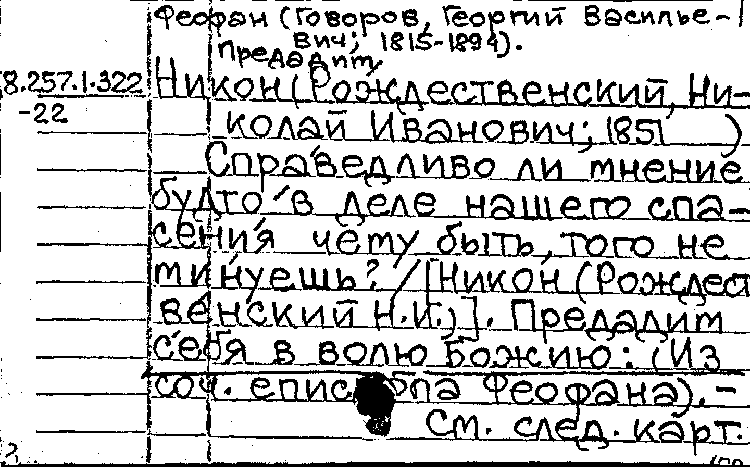 Феофан (Говоров, Георгий Василье-
вич; 1815-1894).
Предадит
8.257.1.322
-22
Никон (Рождественский, Ни-
колай Иванович; 1851 )
Справедливо ли мнение
будто в деле нашего спа-
сения чему быть, того не
минуешь? / [Никон (Рождест
венский Н.И.)]. Предадим
себя в волю Божию: (Из
соч. епископа Феофана).-
См. след. карт.